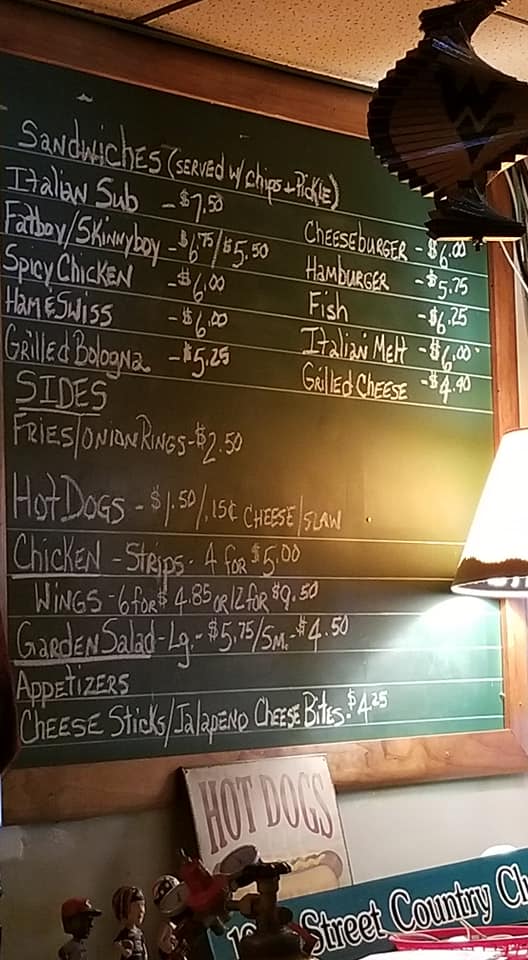 Sandwiches (served w/ chips + Pickle)
Italian Sub - $7.50
Fatboy/Skinnyboy - $6.75/$5.50
Spicy Chicken - $6.00
Ham & Swiss - $6.00
Grilled Bologna - $5.25
Cheeseburger - $6.00
Hamburger - $5.75
Fish - $6.25
Italian Melt - $6.00
Grilled Cheese - $4.40
SIDES
Fries/Onion Rings - $2.50
Hot Dogs - $1.50/.15¢ Cheese/Slaw
Chicken - Strips - 4 for $5.00
Wings - 6 for $4.85 or 12 for $9.50
Garden Salad - Lg. - $5.75/Sm. - $4.50
Appetizers
Cheese Sticks/Jalapeno Cheese Bites. $4.25
HOT DOGS
Street Country Ch